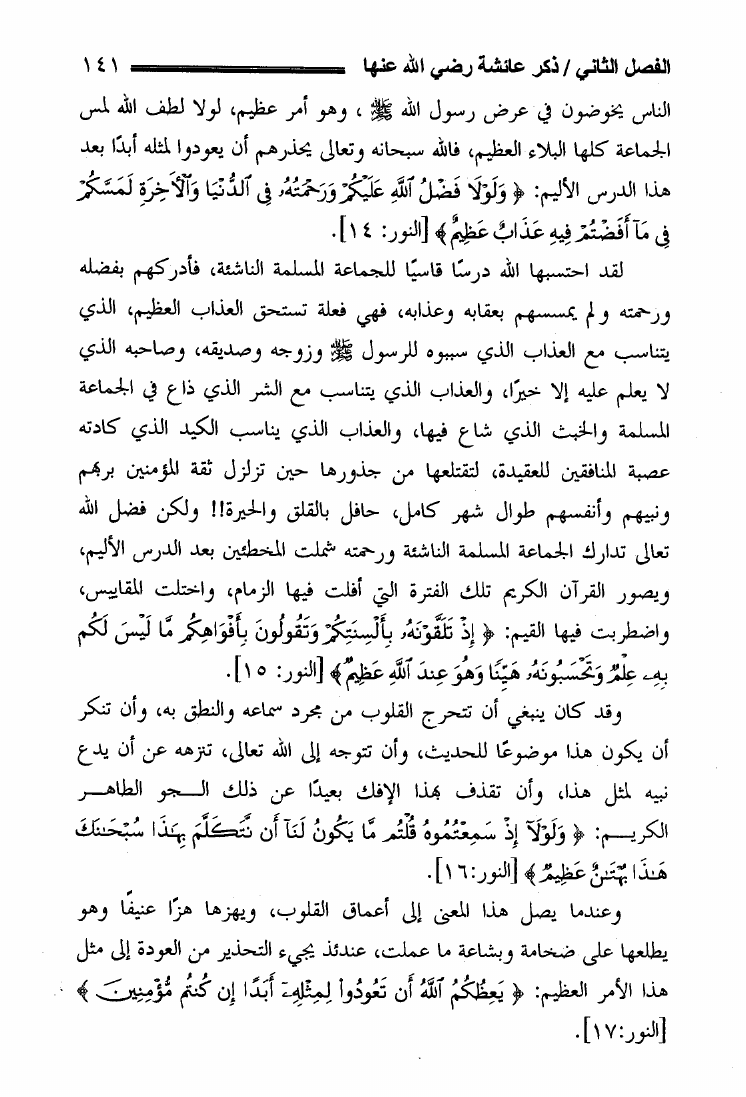 الفصل الثاني / ذكر عائشة رضي الله عنها ١٤١
الناس يخوضون في عرض رسول الله ﷺ ، وهو أمر عظيم، لولا لطف الله لمس
الجماعة كلها البلاء العظيم، فالله سبحانه وتعالى يحذرهم أن يعودوا لمثله أبدًا بعد
هذا الدرس الأليم: ﴿ وَلَوْلَا فَضْلُ ٱللَّهِ عَلَيْكُمْ وَرَحْمَتُهُۥ فِى ٱلدُّنْيَا وَٱلْأَخِرَةِ لَمَسَّكُمْ
فِى مَآ أَفَضْتُمْ فِيهِ عَذَابٌ عَظِيمٌ﴾ [النور: ١٤].
لقد احتسبها الله درسًا قاسيًا للجماعة المسلمة الناشئة، فأدركهم بفضله
ورحمته ولم يمسسهم بعقابه وعذابه، فهي فعلة تستحق العذاب العظيم، الذي
يتناسب مع العذاب الذي سببوه للرسول ﷺ وزوجه وصديقه، وصاحبه الذي
لا يعلم عليه إلا خيرًا، والعذاب الذي يتناسب مع الشر الذي ذاع في الجماعة
المسلمة والخبث الذي شاع فيها، والعذاب الذي يناسب الكيد الذي كادته
عصبة المنافقين للعقيدة، لتقتلعها من جذورها حين تزلزل ثقة المؤمنين بربهم
ونبيهم وأنفسهم طوال شهر كامل، حافل بالقلق والحيرة!! ولكن فضل الله
تعالى تدارك الجماعة المسلمة الناشئة ورحمته شملت المخطئين بعد الدرس الأليم،
ويصور القرآن الكريم تلك الفترة التي أفلت فيها الزمام، واختلت المقاييس،
واضطربت فيها القيم: ﴿ إِذْ تَلَقَّوْنَهُۥ بِأَلْسِنَتِكُمْ وَتَقُولُونَ بِأَفْوَاهِكُم مَّا لَيْسَ لَكُم
بِهِۦ عِلْمٌ وَتَحْسَبُونَهُۥ هَيِّنًا وَهُوَ عِندَ ٱللَّهِ عَظِيمٌ﴾ [النور: ١٥].
وقد كان ينبغي أن تتحرج القلوب من مجرد سماعه والنطق به، وأن تنكر
أن يكون هذا موضوعًا للحديث، وأن تتوجه إلى الله تعالى، تنزهه عن أن يدع
نبيه لمثل هذا، وأن تقذف بهذا الإفك بعيدًا عن ذلك الـجو الطاهـر
الكريـم: ﴿ وَلَوْلَآ إِذْ سَمِعْتُمُوهُ قُلْتُم مَّا يَكُونُ لَنَآ أَن نَّتَكَلَّمَ بِهَٰذَا سُبْحَٰنَكَ
هَٰذَا بُهْتَٰنٌ عَظِيمٌ ﴾ [النور:١٦].
وعندما يصل هذا المعنى إلى أعماق القلوب، ويهزها هزًا عنيفًا وهو
يطلعها على ضخامة وبشاعة ما عملت، عندئذ يجيء التحذير من العودة إلى مثل
هذا الأمر العظيم: ﴿ يَعِظُكُمُ ٱللَّهُ أَن تَعُودُوا۟ لِمِثْلِهِۦٓ أَبَدًا إِن كُنتُم مُّؤْمِنِينَ ﴾
[النور:١٧].